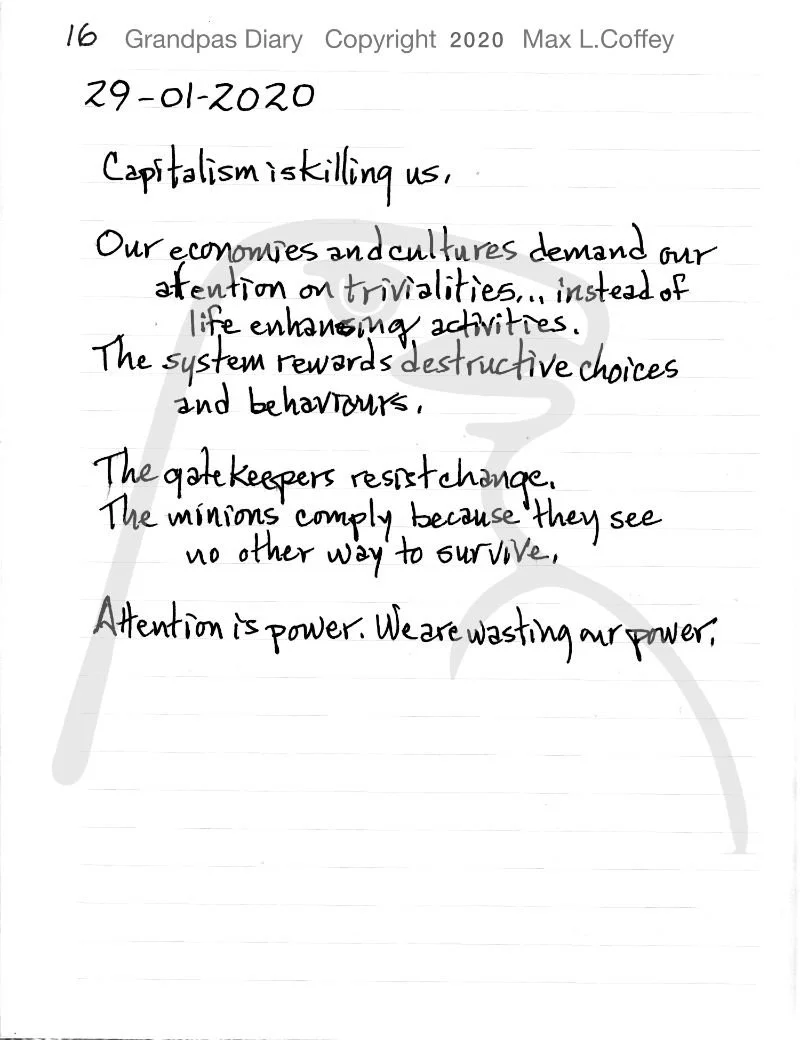 16 Grandpas Diary Copyright 2020 Max L.Coffey
29-01-2020
Capitalism is killing us.
Our economies and cultures demand our
attention on trivialities... instead of
life enhansing activities.
The system rewards destructive choices
and behaviours.
The gatekeepers resist change.
The minions comply because they see
no other way to survive.
Attention is power. We are wasting our power.